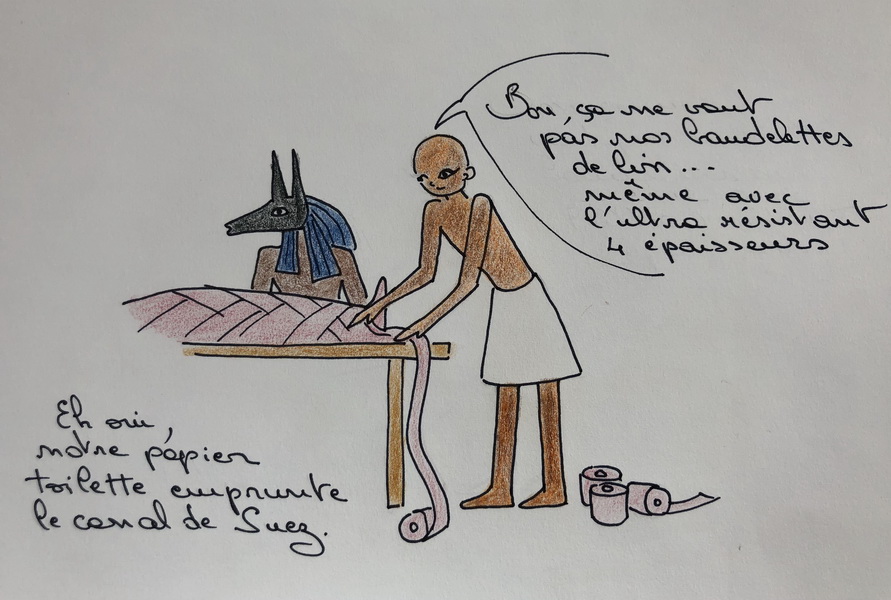 Bon, ça ne vaut
pas nos bandelettes
de lin...
même avec
l'ultra résistant
4 épaisseurs
Eh oui,
notre papier
toilette emprunte
le canal de Suez.